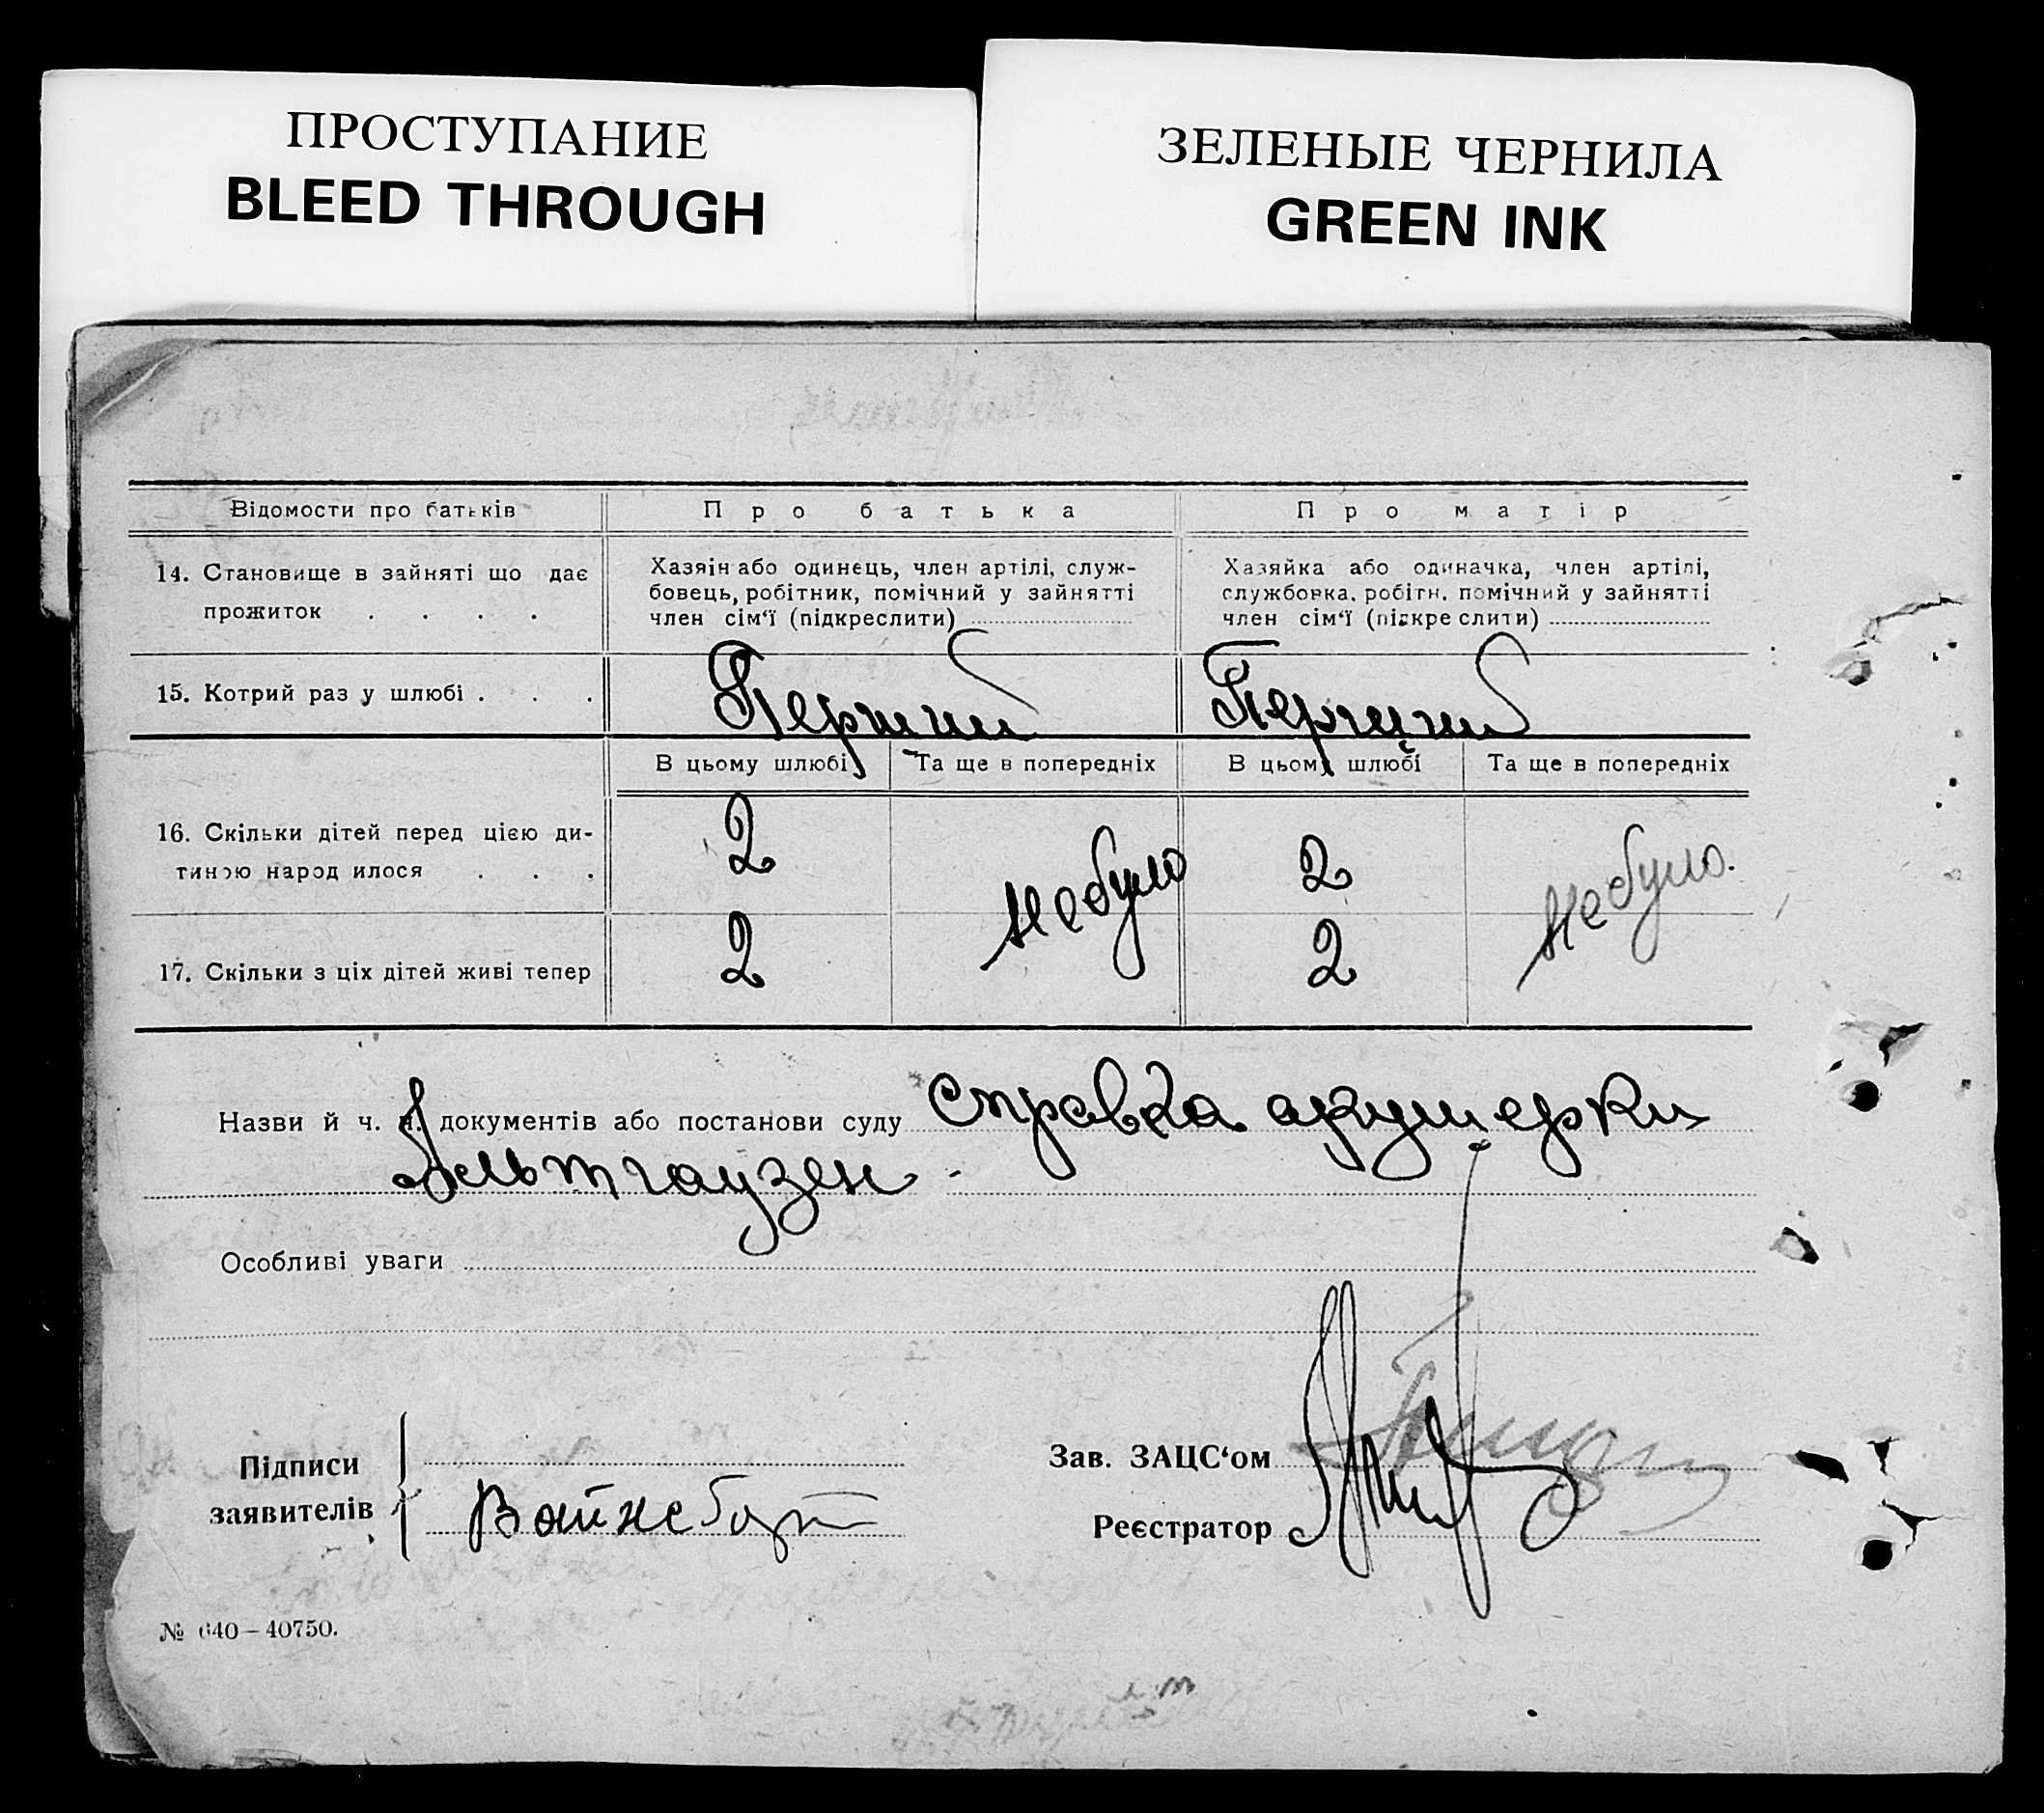 ПРОСТУПАНИЕ
BLEED THROUGH
ЗЕЛЕНЫЕ ЧЕРНИЛА
GREEN INK
Відомости про батьків
Про батька
Про матір
14. Становище в зайняті що дає
прожиток . . . .
Хазяін або одинець, член артілі, служ-
бовець, робітник, помічний у зайнятті
член сім‘ї (підкреслити)
Хазяйка або одиначка, член артілі,
службовка, робітн. помічний у зайнятті
член сім‘ї (підкреслити)
15. Котрий раз у шлюбі . . .
Перший
Перший
В цьому шлюбі
Та ще в попередніх
В цьому шлюбі
Та ще в попередніх
16. Скільки дітей перед цією ди-
тиною народ илося . . .
2
не було
2
не було.
17. Скільки з ціх дітей живі тепер
2
2
Назви й ч. ч. документів або постанови суду справка акушерки
Гельтгаузен
Особливі уваги
Підписи
заявителів
Зав. ЗАЦС‘ом
Реєстратор
№ 640–40750.